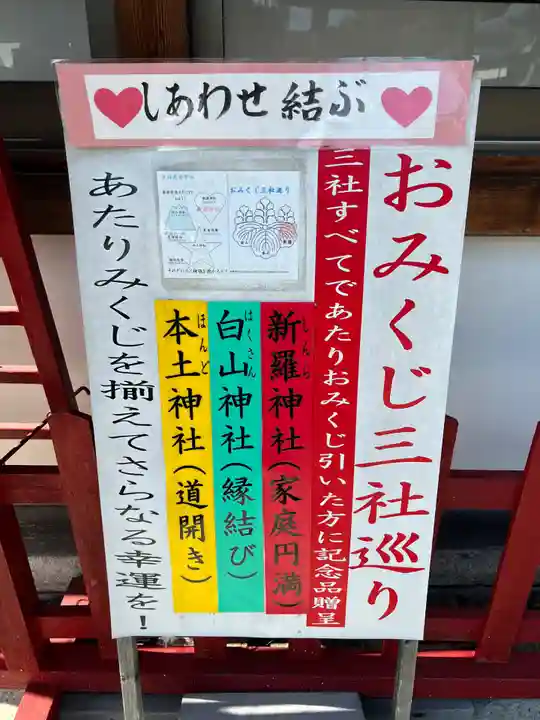 しあわせ結ぶ
おみくじ三社巡り
三社すべてであたりおみくじ引いた方に記念品贈呈
おみくじ三社巡り
新羅神社(家庭円満)
しんら
白山神社(縁結び)
はくさん
本土神社(道開き)
ほんど
あたりみくじを揃えてさらなる幸運を!